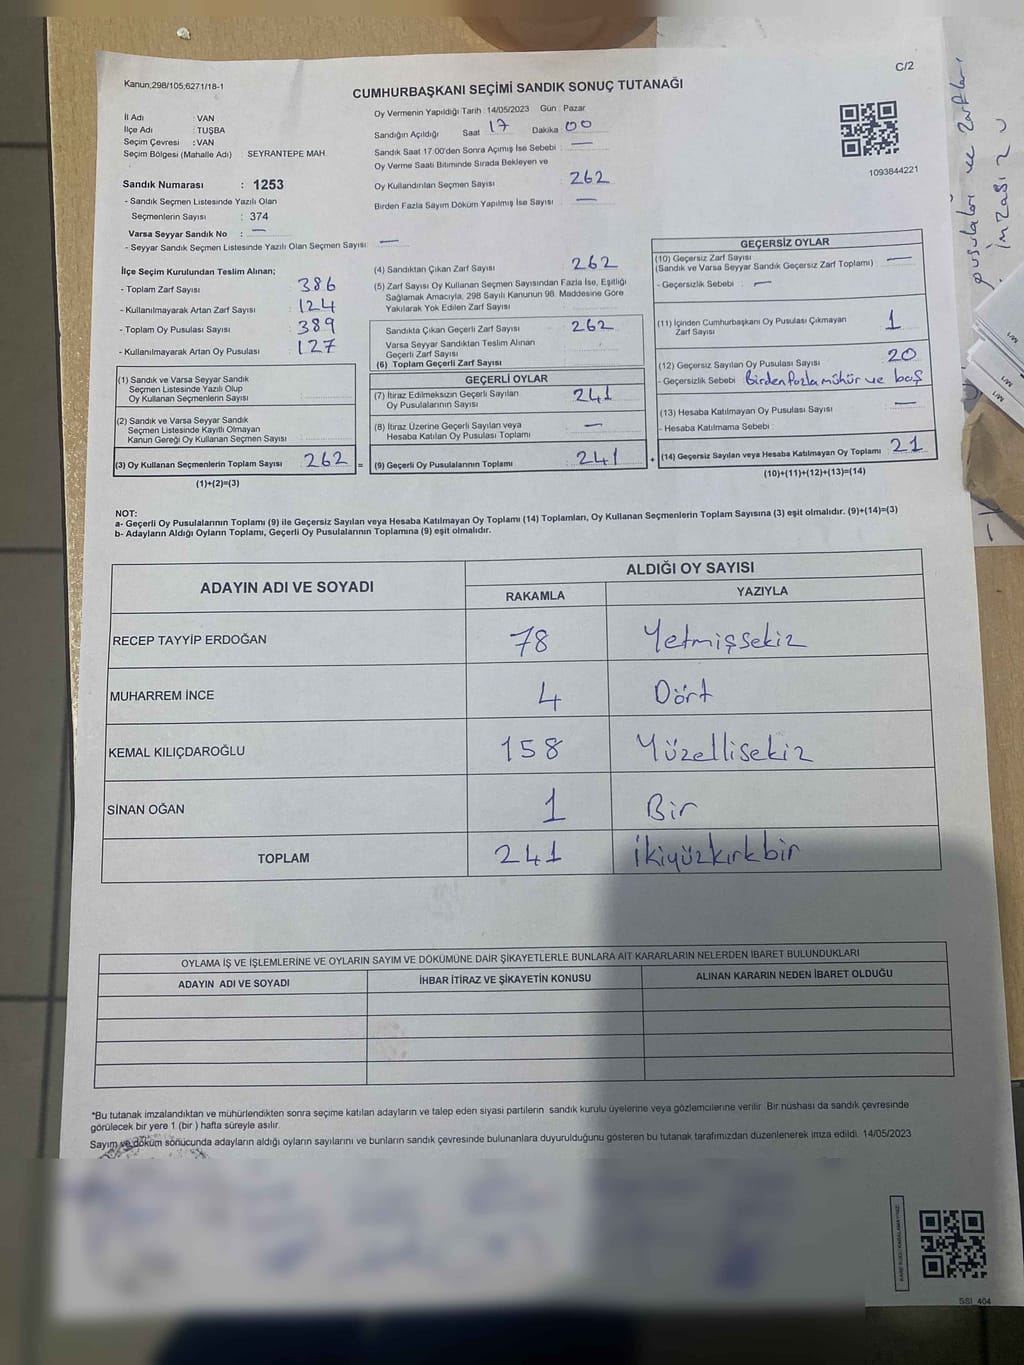 Kanun;298/105;6271/18-1
CUMHURBAŞKANI SEÇİMİ SANDIK SONUÇ TUTANAĞI
C/2
İl Adı : VAN
İlçe Adı : TUŞBA
Seçim Çevresi : VAN
Seçim Bölgesi (Mahalle Adı) SEYRANTEPE MAH.
:
Sandık Numarası : 1253
- Sandık Seçmen Listesinde Yazılı Olan
Seçmenlerin Sayısı : 374
Varsa Seyyar Sandık No : —
- Seyyar Sandık Seçmen Listesinde Yazılı Olan Seçmen Sayısı: —
Oy Vermenin Yapıldığı Tarih : 14/05/2023 Gün : Pazar
Sandığın Açıldığı Saat 17 Dakika 00
Sandık Saat 17:00'den Sonra Açımış İse Sebebi : —
Oy Verme Saati Bitiminde Sırada Bekleyen ve
Oy Kullandırılan Seçmen Sayısı 262
Birden Fazla Sayım Döküm Yapılmış İse Sayısı : —
1093844221
İlçe Seçim Kurulundan Teslim Alınan;
- Toplam Zarf Sayısı 386
- Kullanılmayarak Artan Zarf Sayısı 124
- Toplam Oy Pusulası Sayısı 389
- Kullanılmayarak Artan Oy Pusulası 127
(1) Sandık ve Varsa Seyyar Sandık
Seçmen Listesinde Yazılı Olup
Oy Kullanan Seçmenlerin Sayısı
(2) Sandık ve Varsa Seyyar Sandık
Seçmen Listesinde Kayıtlı Olmayan
Kanun Gereği Oy Kullanan Seçmen Sayısı
(3) Oy Kullanan Seçmenlerin Toplam Sayısı 262 =
(1)+(2)=(3)
(4) Sandıktan Çıkan Zarf Sayısı 262
(5) Zarf Sayısı Oy Kullanan Seçmen Sayısından Fazla İse, Eşitliği
Sağlamak Amacıyla, 298 Sayılı Kanunun 98. Maddesine Göre
Yakılarak Yok Edilen Zarf Sayısı
Sandıkta Çıkan Geçerli Zarf Sayısı 262
Varsa Seyyar Sandıktan Teslim Alınan
Geçerli Zarf Sayısı
(6) Toplam Geçerli Zarf Sayısı
GEÇERLİ OYLAR
(7) İtiraz Edilmeksizin Geçerli Sayılan
Oy Pusulalarının Sayısı 241
(8) İtiraz Üzerine Geçerli Sayılan veya
Hesaba Katılan Oy Pusulası Toplamı —
(9) Geçerli Oy Pusulalarının Toplamı 241 +
GEÇERSİZ OYLAR
(10) Geçersiz Zarf Sayısı
(Sandık ve Varsa Seyyar Sandık Geçersiz Zarf Toplamı) : —
- Geçersizlik Sebebi : —
(11) İçinden Cumhurbaşkanı Oy Pusulası Çıkmayan
Zarf Sayısı 1
(12) Geçersiz Sayılan Oy Pusulası Sayısı 20
- Geçersizlik Sebebi Birden fazla mühür ve boş
(13) Hesaba Katılmayan Oy Pusulası Sayısı —
- Hesaba Katılmama Sebebi :
(14) Geçersiz Sayılan veya Hesaba Katılmayan Oy Toplamı : 21
(10)+(11)+(12)+(13)=(14)
NOT:
a- Geçerli Oy Pusulalarının Toplamı (9) ile Geçersiz Sayılan veya Hesaba Katılmayan Oy Toplamı (14) Toplamları, Oy Kullanan Seçmenlerin Toplam Sayısına (3) eşit olmalıdır. (9)+(14)=(3)
b- Adayların Aldığı Oyların Toplamı, Geçerli Oy Pusulalarının Toplamına (9) eşit olmalıdır.
ADAYIN ADI VE SOYADI ALDIĞI OY SAYISI
RAKAMLA YAZIYLA
RECEP TAYYİP ERDOĞAN 78 Yetmişsekiz
MUHARREM İNCE 4 Dört
KEMAL KILIÇDAROĞLU 158 Yüzellisekiz
SİNAN OĞAN 1 Bir
TOPLAM 241 ikiyüzkırkbir
OYLAMA İŞ VE İŞLEMLERİNE VE OYLARIN SAYIM VE DÖKÜMÜNE DAİR ŞİKAYETLERLE BUNLARA AİT KARARLARIN NELERDEN İBARET BULUNDUKLARI
ADAYIN ADI VE SOYADI İHBAR İTİRAZ VE ŞİKAYETİN KONUSU ALINAN KARARIN NEDEN İBARET OLDUĞU
*Bu tutanak imzalandıktan ve mühürlendikten sonra seçime katılan adayların ve talep eden siyasi partilerin sandık kurulu üyelerine veya gözlemcilerine verilir. Bir nüshası da sandık çevresinde
görülecek bir yere 1 (bir ) hafta süreyle asılır.
Sayım ve döküm sonucunda adayların aldığı oyların sayılarını ve bunların sandık çevresinde bulunanlara duyurulduğunu gösteren bu tutanak tarafımızdan düzenlenerek imza edildi. 14/05/2023
SSİ 404
pusulaları ve zarfları
imzası
M/1
M/1
M/1